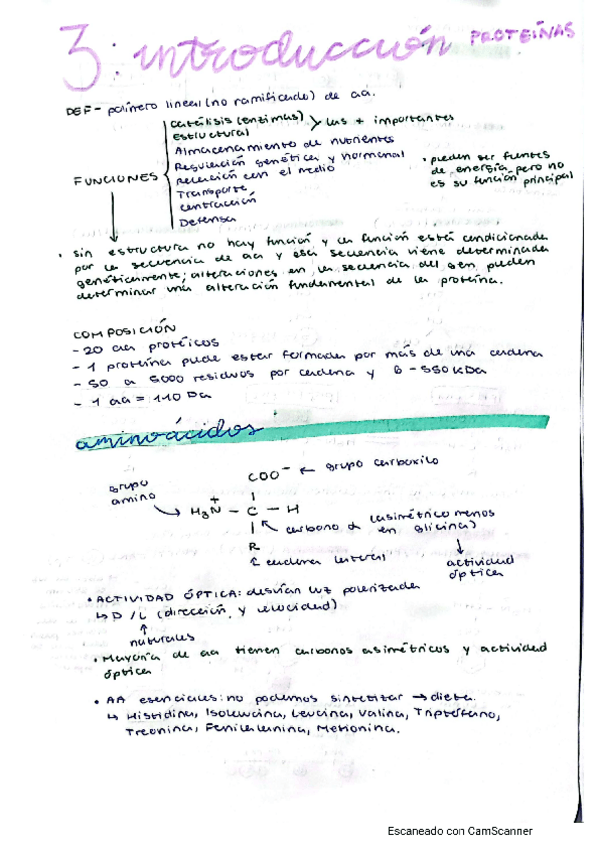 3. introducción PROTEÍNAS
DEF - polímero lineal (no ramificado) de aa.
FUNCIONES
Catálisis (enzimas) las + importantes
Estructural
Almacenamiento de nutrientes
Regulación genética y hormonal
relación con el medio
Transporte
contracción
Defensa
• pueden ser fuentes
de energía, pero no
es su función principal
• sin estructura no hay función y la función está condicionada
por la secuencia de aa y esa secuencia viene determinada
genéticamente; alteraciones en la secuencia del gen pueden
determinar una alteración fundamental de la proteína.
COMPOSICIÓN
- 20 aa protéicos
- 1 proteína puede estar formada por más de una cadena
- 50 a 5000 residuos por cadena y 6 - 550 KDa
- 1 aa = 110 Da
aminoácidos
COO⁻ ← grupo carboxilo
grupo
amino
H₃N⁺ - C - H
carbono α (asimétrico menos
en glicina)
R
cadena lateral
actividad
óptica
• ACTIVIDAD ÓPTICA: desvían luz polarizada
↳ D / L (dirección y velocidad)
naturales
• Mayoría de aa tienen carbonos asimétricos y actividad
óptica
• AA esenciales: no podemos sintetizar → dieta.
↳ Histidina, Isoleucina, Leucina, Valina, Triptófano,
Treonina, Fenilalanina, Metionina.
Escaneado con CamScanner